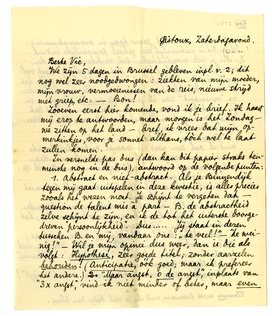 Gistoux, Zaterdagavond.
Beste Vic,
We zijn 5 dagen in Brussel gebleven inpl. v. 2; dit
nog wel zeer noodgedwongen: ziekten van mijn moeder,
mijn vrouw, vermoeienissen van de reis, nieuwe strijd
met greep, etc. — Bon!
Zooeven eerst hier komende, vond ik je brief. Ik haast
mij erop te antwoorden, maar morgen is het Zondag
en we zitten op het land — dus, ik vrees dat mijn op-
merkingen, voor je sonnet althans, toch wel te laat
zullen komen.
In versnelde pas dus (dan kan dit papier straks ten-
minste nog in de bus), antwoord op de volgende punten:
1. Abstract en niet abstract. Als je
tegen mij gaat uitspelen in deze kwestie, is alles precies
zooals het wezen moet. Je schijnt te vergeten dat
question de talent mis à part — B. de abstractheid
zelve schijnt te zijn, en ik de tot het uiterste doorge-
dreven persoonlijkheid. Dus... Jij staat in dezen
tusschen B. en mij, vandaar ons: „te veel!" — „te wei-
nig!" — Wil je mijn opinie dus weer, dan is die als
volgt: Hypotheer, zeer goede titel, zonder aarzelen
behouden! (Anticipatie, ook goed, maar ik prefereer
het andere.) 2e „Uw angst, o de angst", inplaats van
"3x angst", vind ik niet minder of beter, maar even